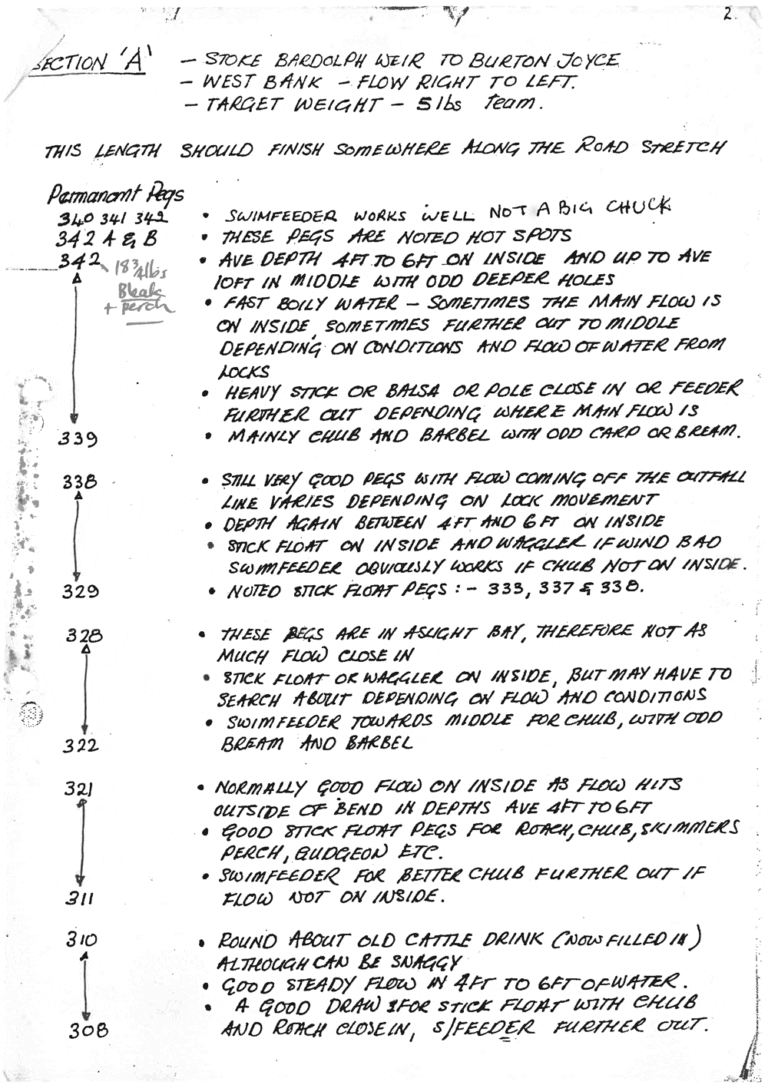 2.
SECTION 'A' - STOKE BARDOLPH WEIR TO BURTON JOYCE
- WEST BANK - FLOW RIGHT TO LEFT.
- TARGET WEIGHT - 5lbs Team.
THIS LENGTH SHOULD FINISH SOMEWHERE ALONG THE ROAD STRETCH
Permanant Pegs
340 341 342 • SWIMFEEDER WORKS WELL NOT A BIG CHUCK
342 A & B • THESE PEGS ARE NOTED HOT SPOTS
342 • AVE DEPTH 4FT TO 6FT ON INSIDE AND UP TO AVE
18 3/4 lbs
Bleak
+ perch
10FT IN MIDDLE WITH ODD DEEPER HOLES
• FAST BOILY WATER - SOMETIMES THE MAIN FLOW IS
ON INSIDE, SOMETIMES FURTHER OUT TO MIDDLE
DEPENDING ON CONDITIONS AND FLOW OF WATER FROM
LOCKS
• HEAVY STICK OR BALSA OR POLE CLOSE IN OR FEEDER
FURTHER OUT DEPENDING WHERE MAIN FLOW IS
339 • MAINLY CHUB AND BARBEL WITH ODD CARP OR BREAM.
338 • STILL VERY GOOD PEGS WITH FLOW COMING OFF THE OUTFALL
LINE VARIES DEPENDING ON LOCK MOVEMENT
• DEPTH AGAIN BETWEEN 4FT AND 6FT ON INSIDE
• STICK FLOAT ON INSIDE AND WAGGLER IF WIND BAD
SWIMFEEDER OBVIOUSLY WORKS IF CHUB NOT ON INSIDE.
329 • NOTED STICK FLOAT PEGS :- 333, 337 & 338.
328 • THESE PEGS ARE IN A SLIGHT BAY, THEREFORE NOT AS
MUCH FLOW CLOSE IN
• STICK FLOAT OR WAGGLER ON INSIDE, BUT MAY HAVE TO
SEARCH ABOUT DEPENDING ON FLOW AND CONDITIONS
• SWIMFEEDER TOWARDS MIDDLE FOR CHUB, WITH ODD
322 BREAM AND BARBEL
321 • NORMALLY GOOD FLOW ON INSIDE AS FLOW HITS
OUTSIDE OF BEND IN DEPTHS AVE 4FT TO 6FT
• GOOD STICK FLOAT PEGS FOR ROACH, CHUB, SKIMMERS
PERCH, GUDGEON ETC.
• SWIMFEEDER FOR BETTER CHUB FURTHER OUT IF
311 FLOW NOT ON INSIDE.
310 • ROUND ABOUT OLD CATTLE DRINK (NOW FILLED IN)
ALTHOUGH CAN BE SNAGGY
• GOOD STEADY FLOW IN 4FT TO 6FT OF WATER.
• A GOOD DRAW FOR STICK FLOAT WITH CHUB
308 AND ROACH CLOSE IN, S/FEEDER FURTHER OUT.